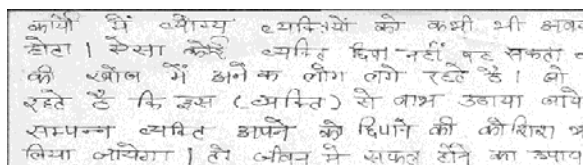 कार्यो में योग्य व्यक्तियों को कभी भी अव
होता । ऐसा कोई व्यक्ति छिपा नहीं रह सकता
की खोज में अनेक लोग लगे रहते है । जो
रहते है कि इस (व्यक्ति) से लाभ उठाया जाये
सम्पन्न व्यक्ति अपने को छिपाने की कोशिश
लिया जायेगा । तो जीवन मे सफल होने का उपाय